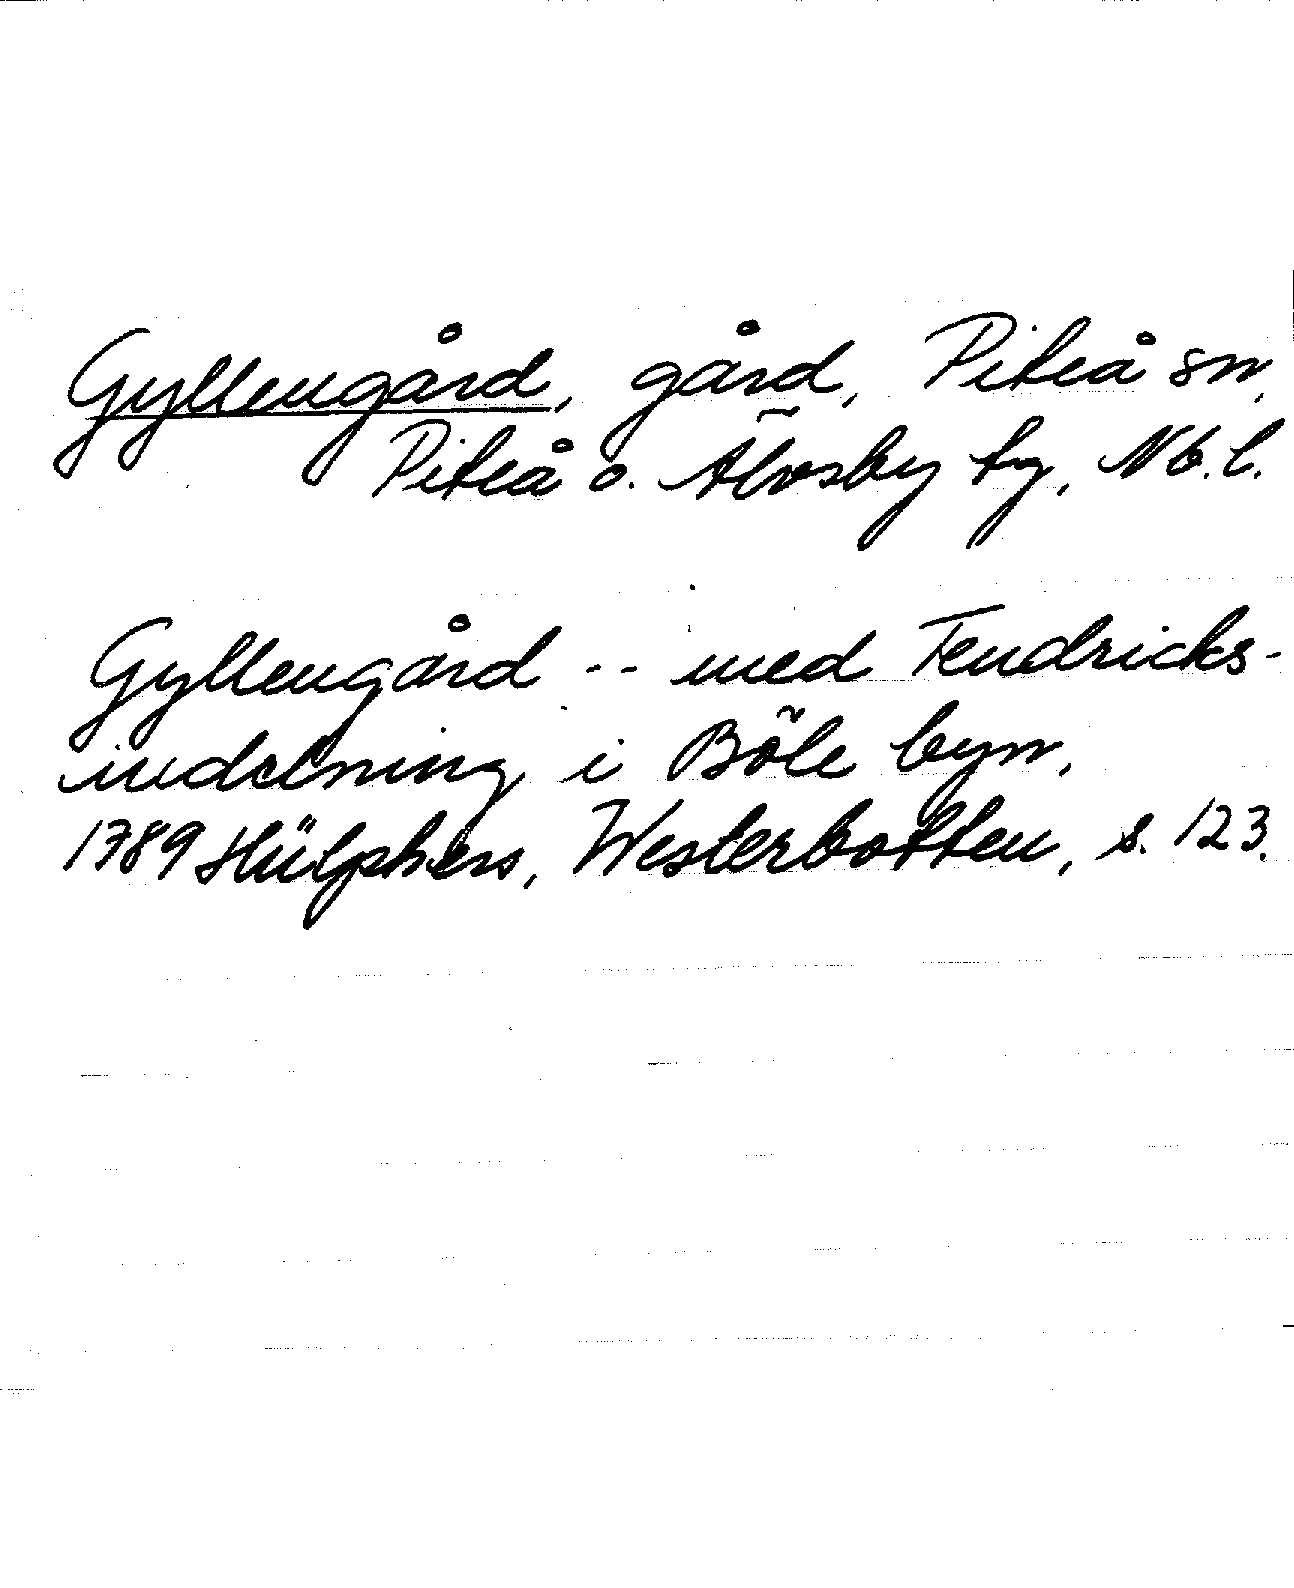 Gyllengård, gård, Piteå sn,
Piteå o. Älvsby tg, Nb.l.
Gyllengård -- med Fendricks-
indelning i Böle byn,
1789 Hülphers, Westerbotten, s. 123.